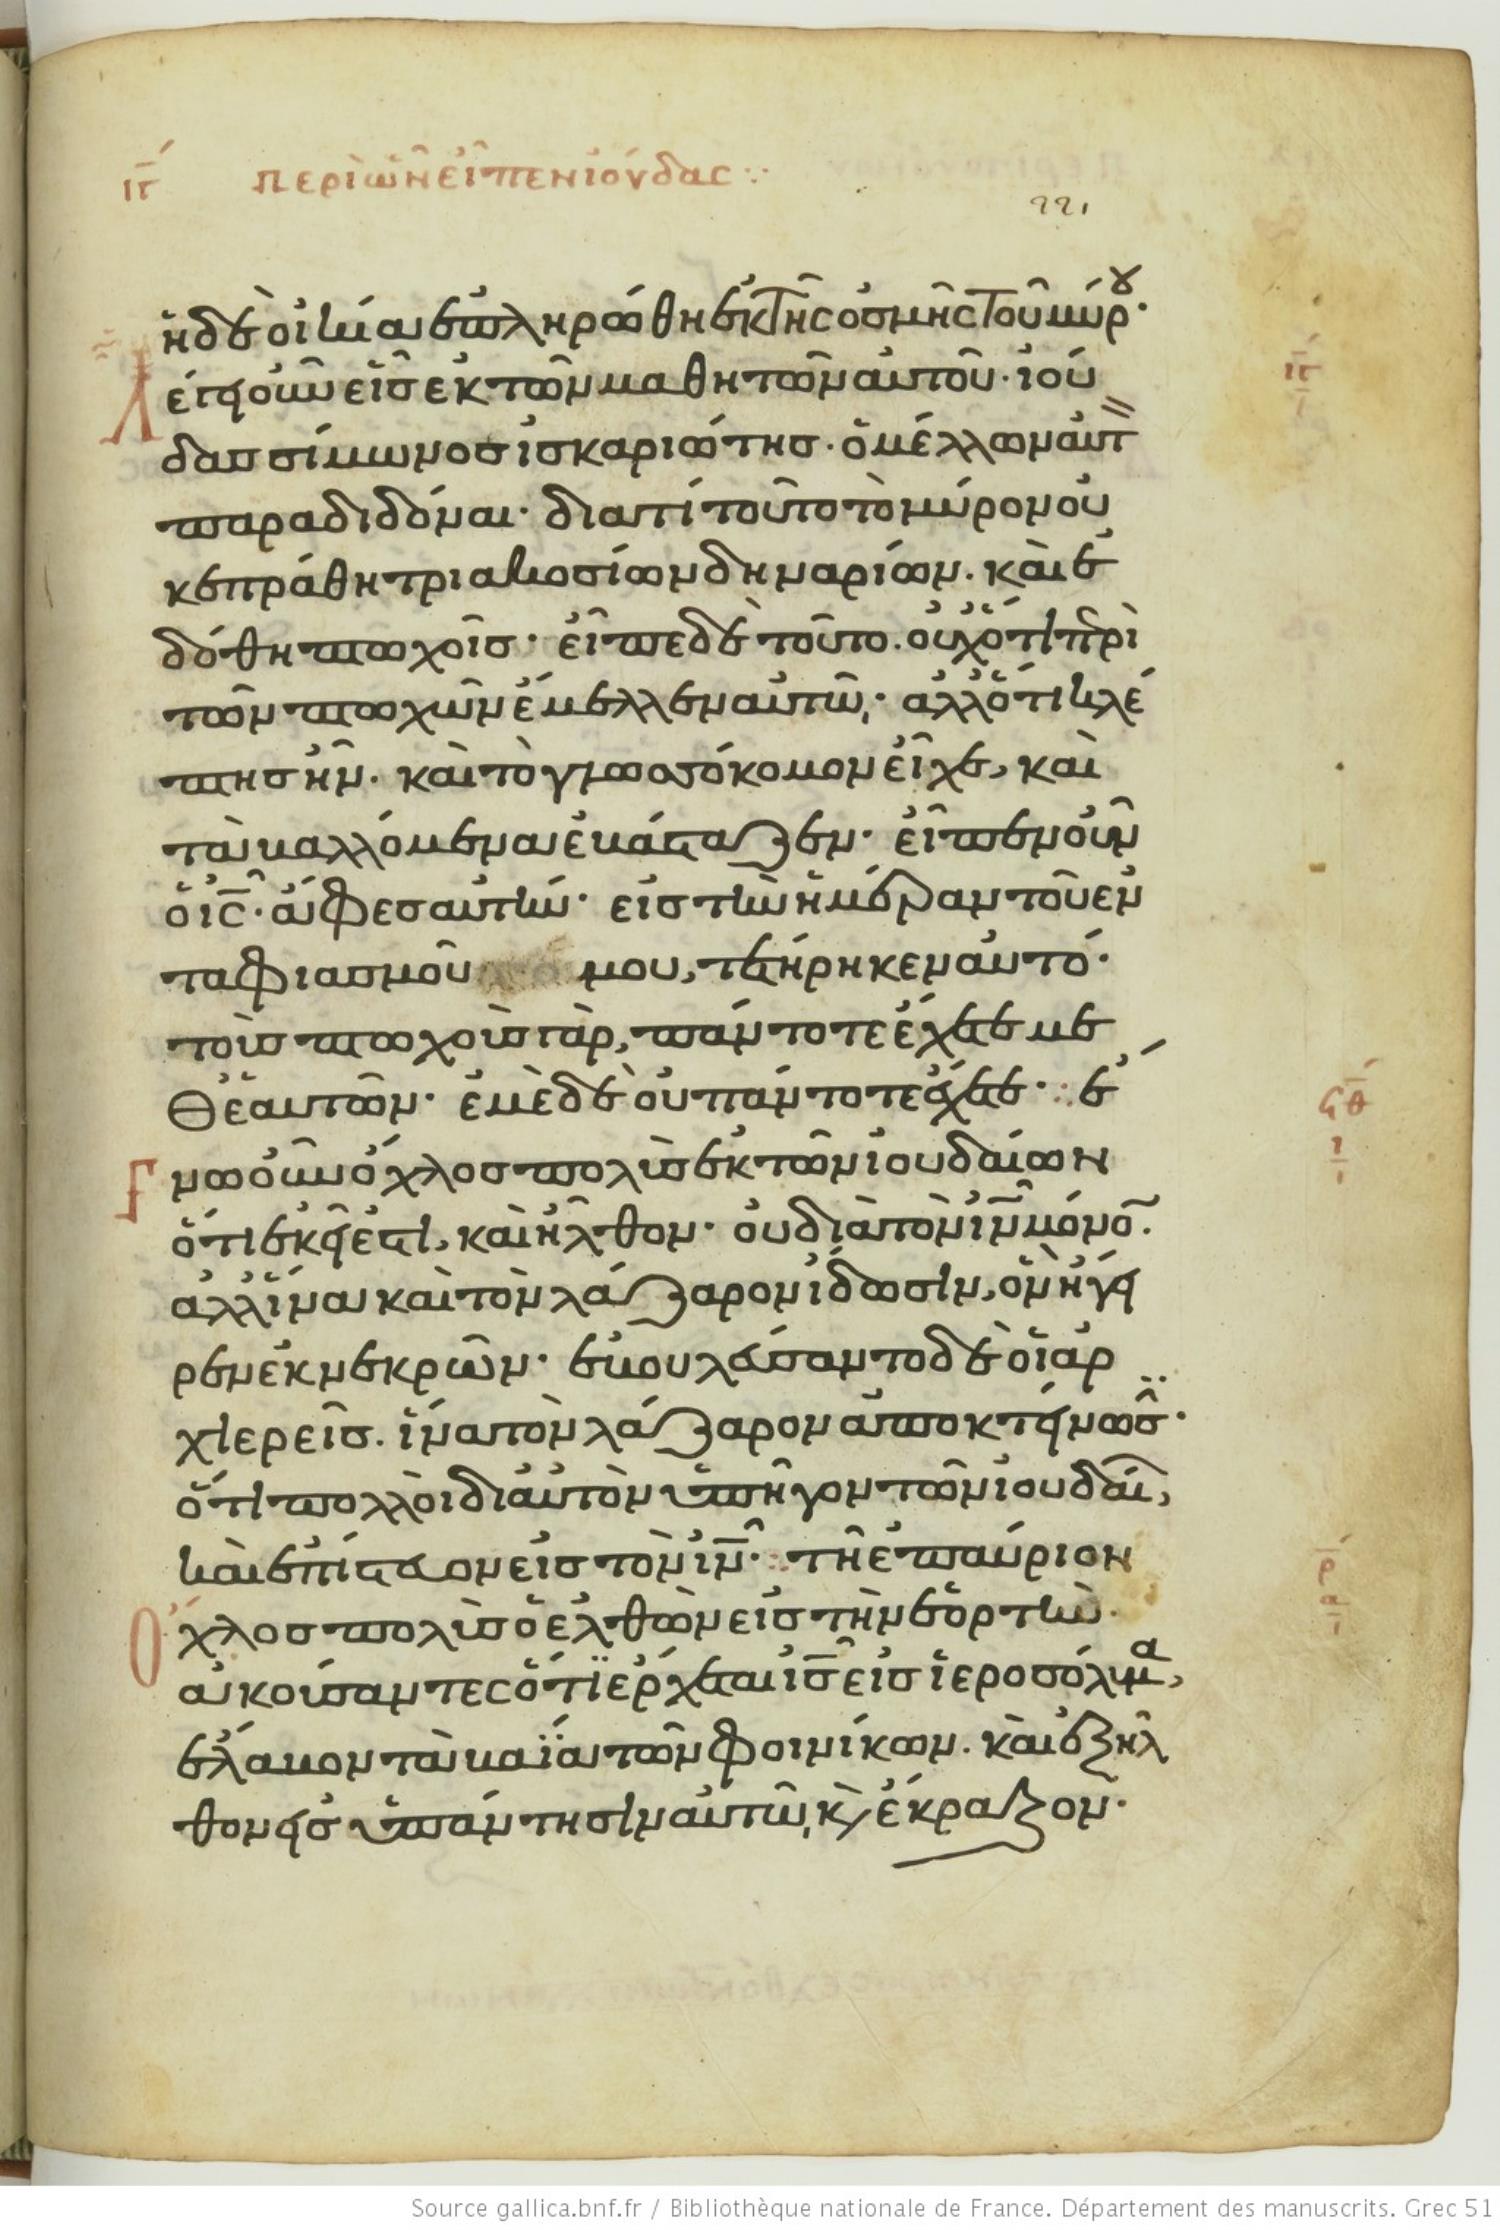 ιγ περὶ ὧν εἶπεν ἰούδας
221
ἡ δὲ οἰκία ἐπληρώθη ἐκ τῆς οσμῆς τοῦ μύρου·
Λέγει οὖν εἷς ἐκ τῶν μαθητῶν αὐτοῦ· ἰού
δας σίμωνος ἰσκαριώτης· ὁ μέλλων αὐτ
παραδιδόναι· διατί τοῦτο τὸ μύρον οὐ
κ ἐπράθη τριακοσίων δηναρίων. καὶ ἐ
δόθη πτωχοῖς· εἶπε δὲ τοῦτο. οὐχ ὅτι περὶ
τῶν πτωχῶν ἔμελλεν αὐτῶ· ἀλλ ὅτι κλέ
πτης ἦν. καὶ τὸ γλωσσόκομον εἶχε, καὶ
τὰ βαλλόμενα ἐβάσταζεν· εἶπεν οὖν
ὁ ις· ἄφες αὐτήν· εἰς τὴν ἡμέραν τοῦ ἐν
ταφιασμοῦ μου, τετήρηκεν αὐτό·
τοὺς πτωχοὺς γὰρ, πάντοτε ἔχετε με
θ ἑαυτῶν· ἐμὲ δὲ οὐ πάντοτε ἔχετε· ἔ
Γνω οὖν ὄχλος πολὺς ἐκ τῶν ἰουδαίων
ὅτι ἐκεῖ ἐστι, καὶ ἦλθον· οὐ διὰ τὸν ιν μόνον.
ἀλλ ἵνα καὶ τὸν λάζαρον ἴδωσιν, ὃν ἤγει
ρεν ἐκ νεκρῶν· ἐβουλεύσαντο δὲ οἱ ἀρ
χιερεῖς. ἵνα τὸν λάζαρον ἀποκτείνωσ·
ὅτι πολλοὶ δι αὐτὸν ὑπῆγον τῶν ἰουδαί,
καὶ ἐπίστευον εἰς τὸν ιν· τῆ ἐπαύριον
Ὄχλος πολὺς ὁ ἐλθὼν εἰς τὴν ἑορτὴν·
ἀκούσαντες ὅτι ἔρχεται ις εἰς ἱεροσόλυμα,
ἔλαβον τὰ βαΐα τῶν φοινίκων. καὶ ἐξῆλ
θον εἰς ὑπάντησιν αὐτῶ, κ ἔκραζον·
ιγ
ϟθ
ι
ρ
α
Source gallica.bnf.fr / Bibliothèque nationale de France. Département des manuscrits. Grec 51